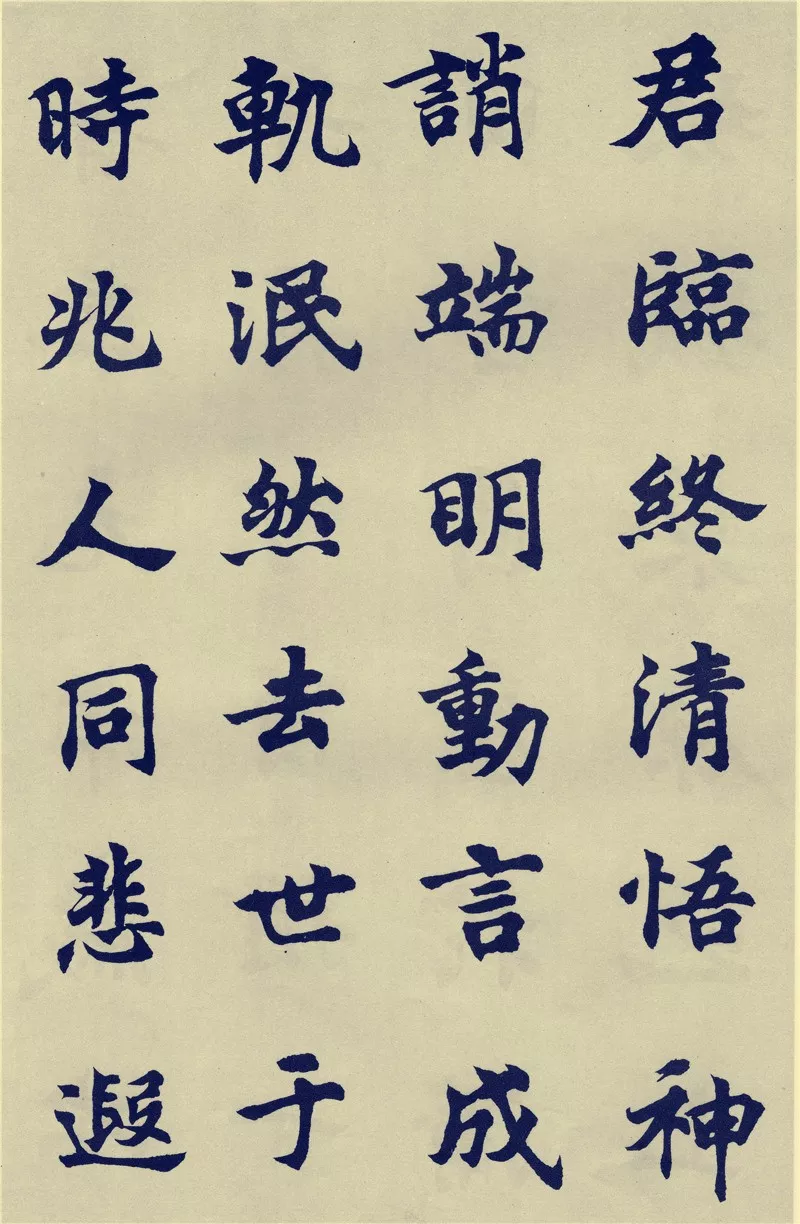 君臨終清悟神
誚端明動言成
軌泯然去世于
時兆人同悲遐